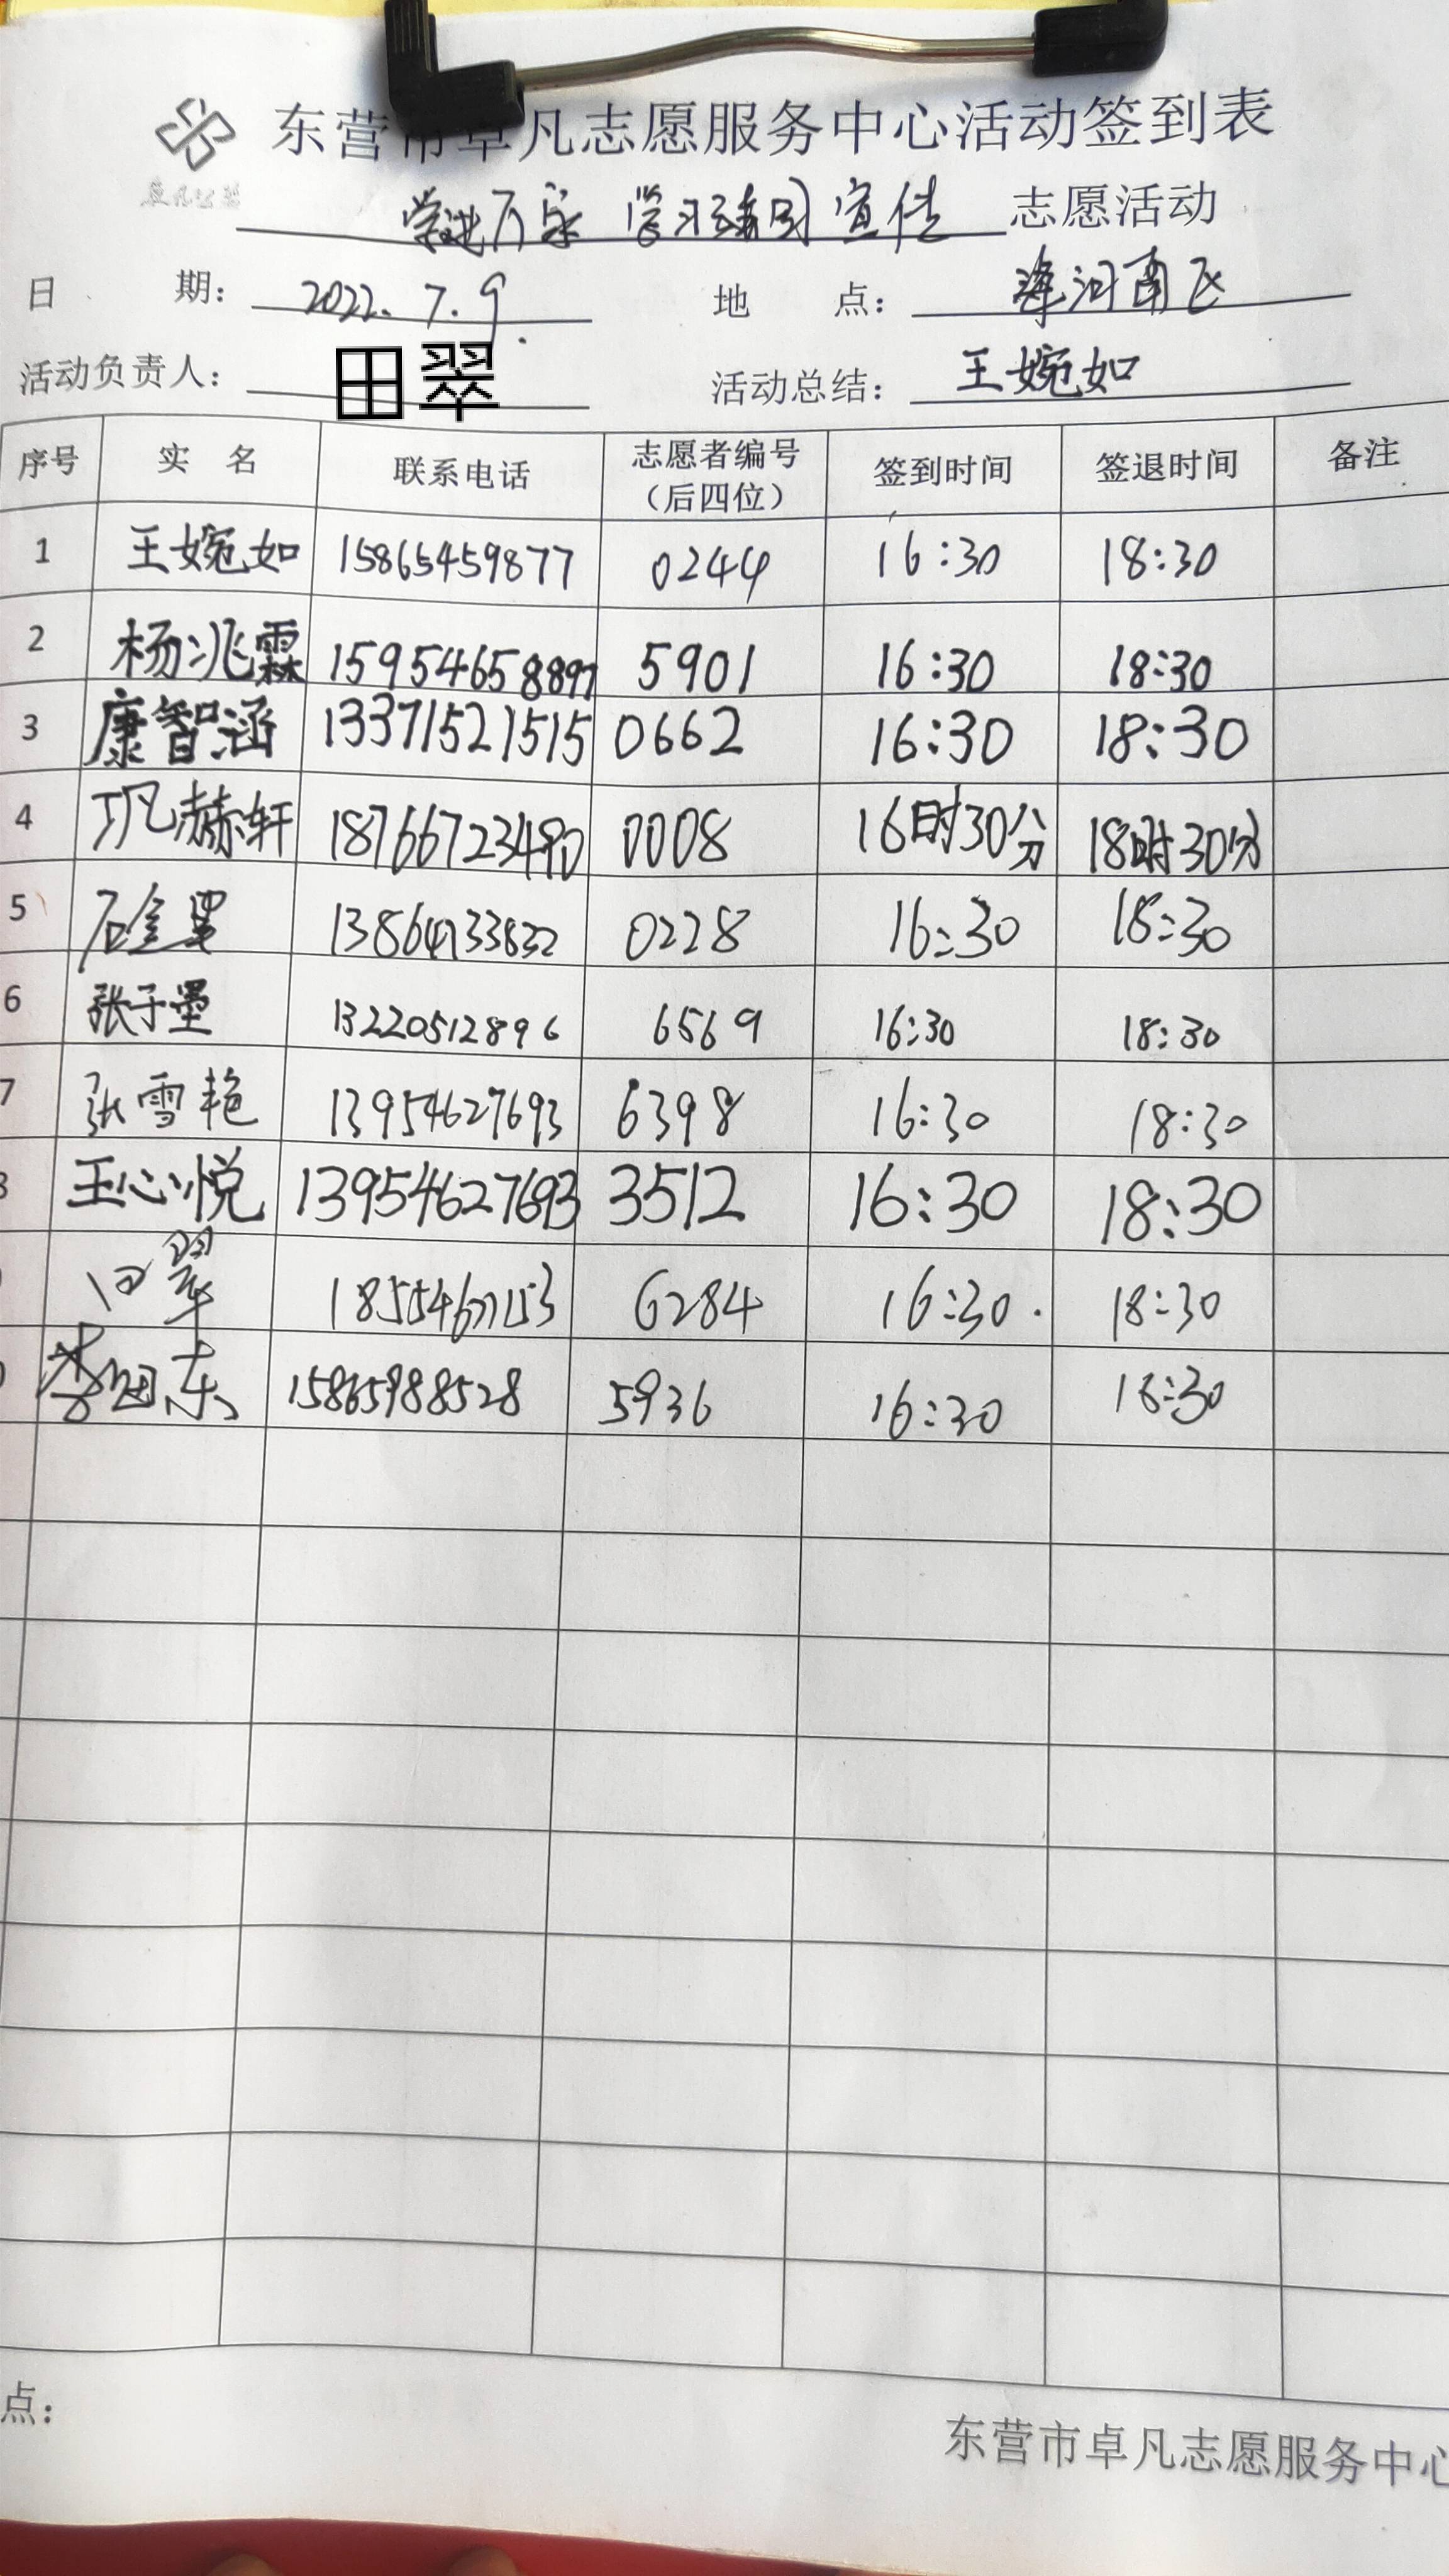 东营市卓凡志愿服务中心活动签到表
学进万家 学习强国 宣传 志愿活动
日 期： 2022.7.9. 地 点： 南区
活动负责人： 田翠 活动总结： 王婉如
序号 实 名 联系电话 志愿者编号（后四位） 签到时间 签退时间 备注
1 王婉如 15865459877 0244 16:30 18:30
2 杨兆霖 15954658897 5901 16:30 18:30
3 康智涵 13371521515 0662 16:30 18:30
4 巩赫轩 18766723490 0008 16时30分 18时30分
5 石金 0228 16:30 18:30
6 张子墨 13220512896 6569 16:30 18:30
7 张雪艳 13954627693 6398 16:30 18:30
王心悦 13954627693 3512 16:30 18:30
田翠 6284 16:30. 18:30
李 东 15865988528 5936 16:30 18:30
点：
东营市卓凡志愿服务中心